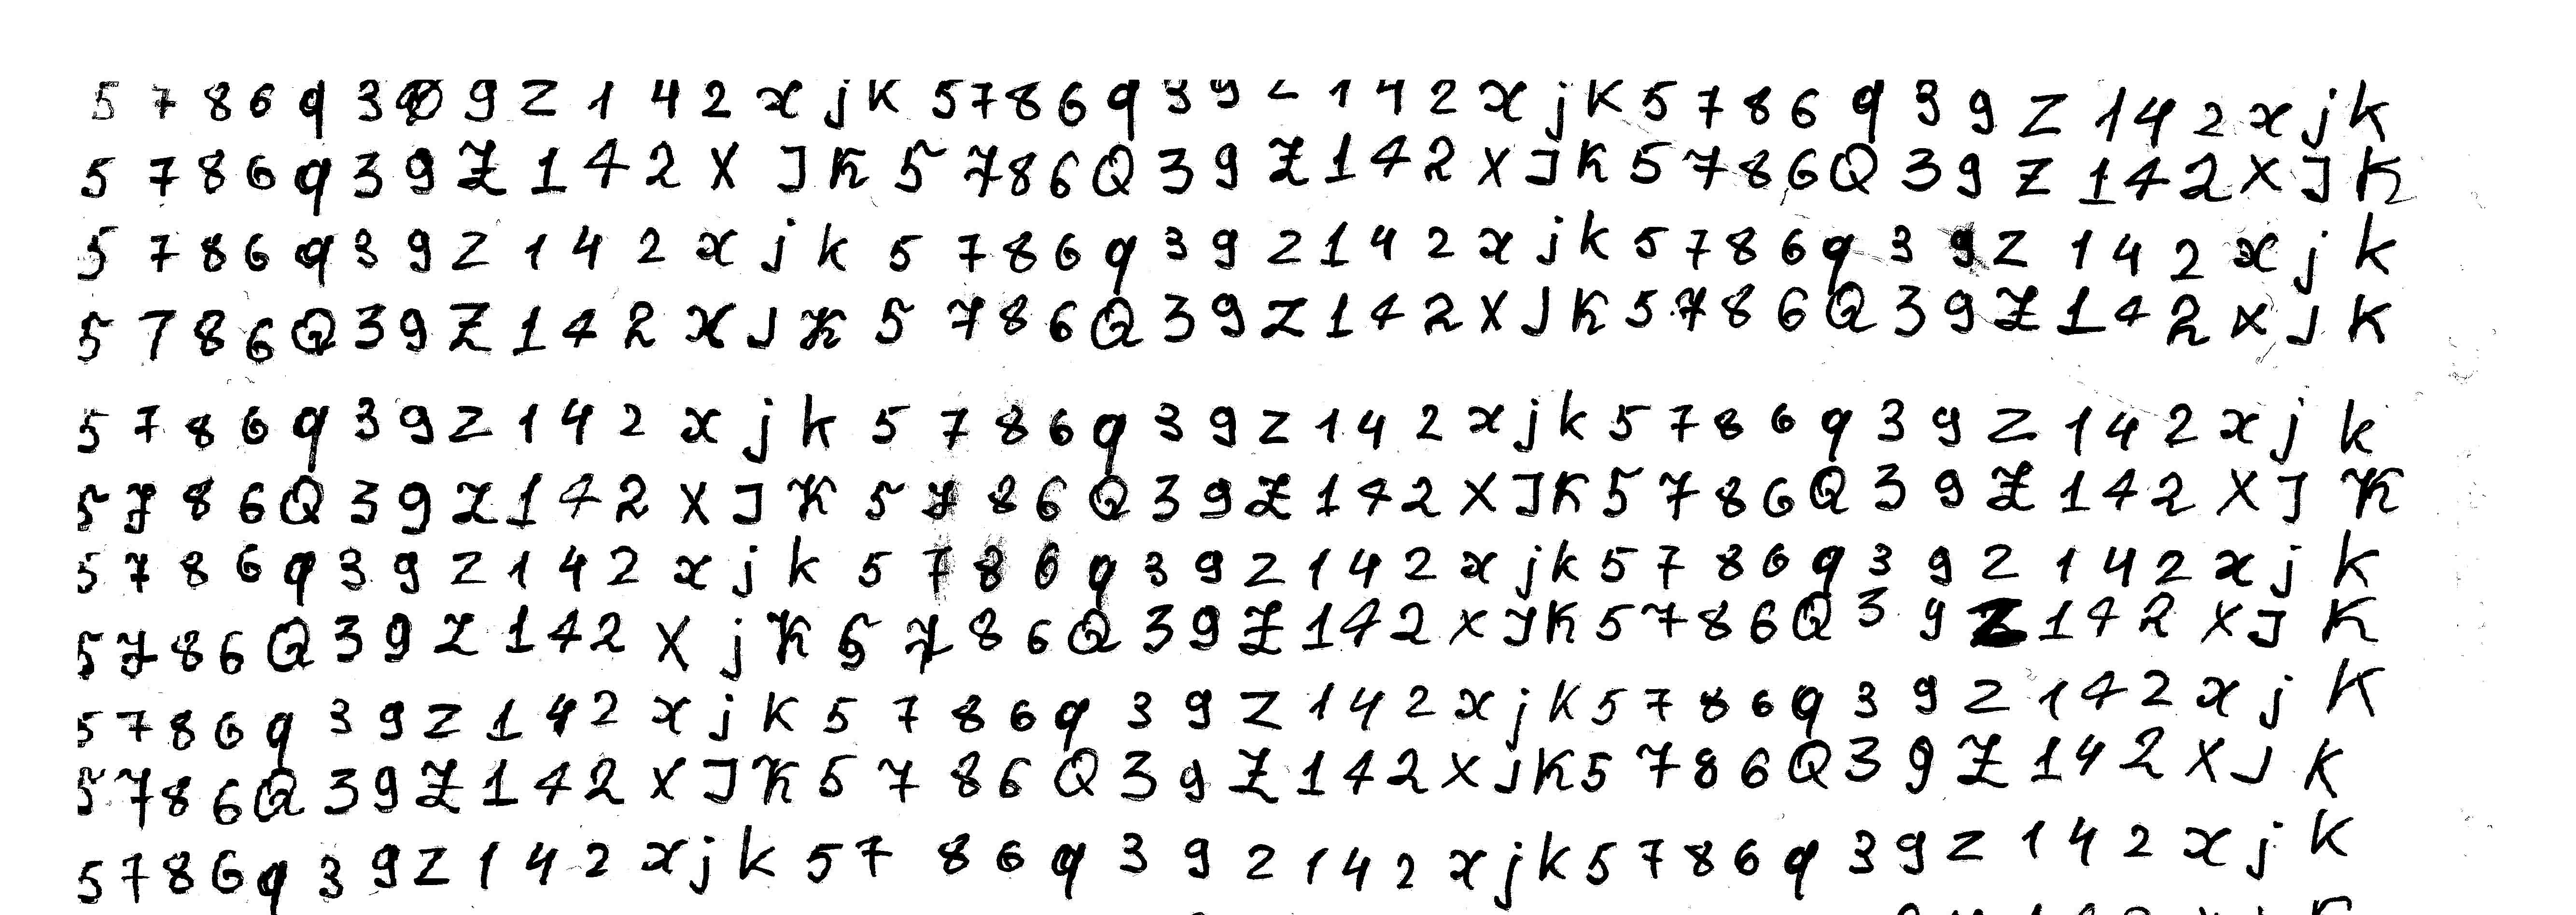 5 7 8 6 q 3 9 z 1 4 2 x j k 5 7 8 6 q 3 9 z 1 4 2 x j k 5 7 8 6 q 3 9 z 1 4 2 x j k
5 7 8 6 q 3 9 Z 1 4 2 X J K 5 7 8 6 Q 3 9 Z 1 4 2 X J K 5 7 8 6 Q 3 9 Z 1 4 2 X J K
5 7 8 6 q 3 9 z 1 4 2 x j k 5 7 8 6 q 3 9 z 1 4 2 x j k 5 7 8 6 q 3 9 z 1 4 2 x j k
5 7 8 6 Q 3 9 Z 1 4 2 X J K 5 7 8 6 Q 3 9 Z 1 4 2 X J K 5 7 8 6 Q 3 9 Z 1 4 2 X J K
5 7 8 6 q 3 9 z 1 4 2 x j k 5 7 8 6 q 3 9 z 1 4 2 x j k 5 7 8 6 q 3 9 z 1 4 2 x j k
5 7 8 6 Q 3 9 Z 1 4 2 X J K 5 7 8 6 Q 3 9 Z 1 4 2 X J K 5 7 8 6 Q 3 9 Z 1 4 2 X J K
5 7 8 6 q 3 9 z 1 4 2 x j k 5 7 8 6 q 3 9 z 1 4 2 x j k 5 7 8 6 q 3 9 z 1 4 2 x j k
5 7 8 6 Q 3 9 Z 1 4 2 X j K 5 7 8 6 Q 3 9 Z 1 4 2 X J K 5 7 8 6 Q 3 9 Z 1 4 2 X J K
5 7 8 6 q 3 9 z 1 4 2 x j k 5 7 8 6 q 3 9 z 1 4 2 x j k 5 7 8 6 q 3 9 z 1 4 2 x j K
5 7 8 6 Q 3 9 Z 1 4 2 X J K 5 7 8 6 Q 3 9 Z 1 4 2 X J K 5 7 8 6 Q 3 9 Z 1 4 2 X J K
5 7 8 6 q 3 9 z 1 4 2 x j k 5 7 8 6 q 3 9 z 1 4 2 x j k 5 7 8 6 q 3 9 z 1 4 2 x j k